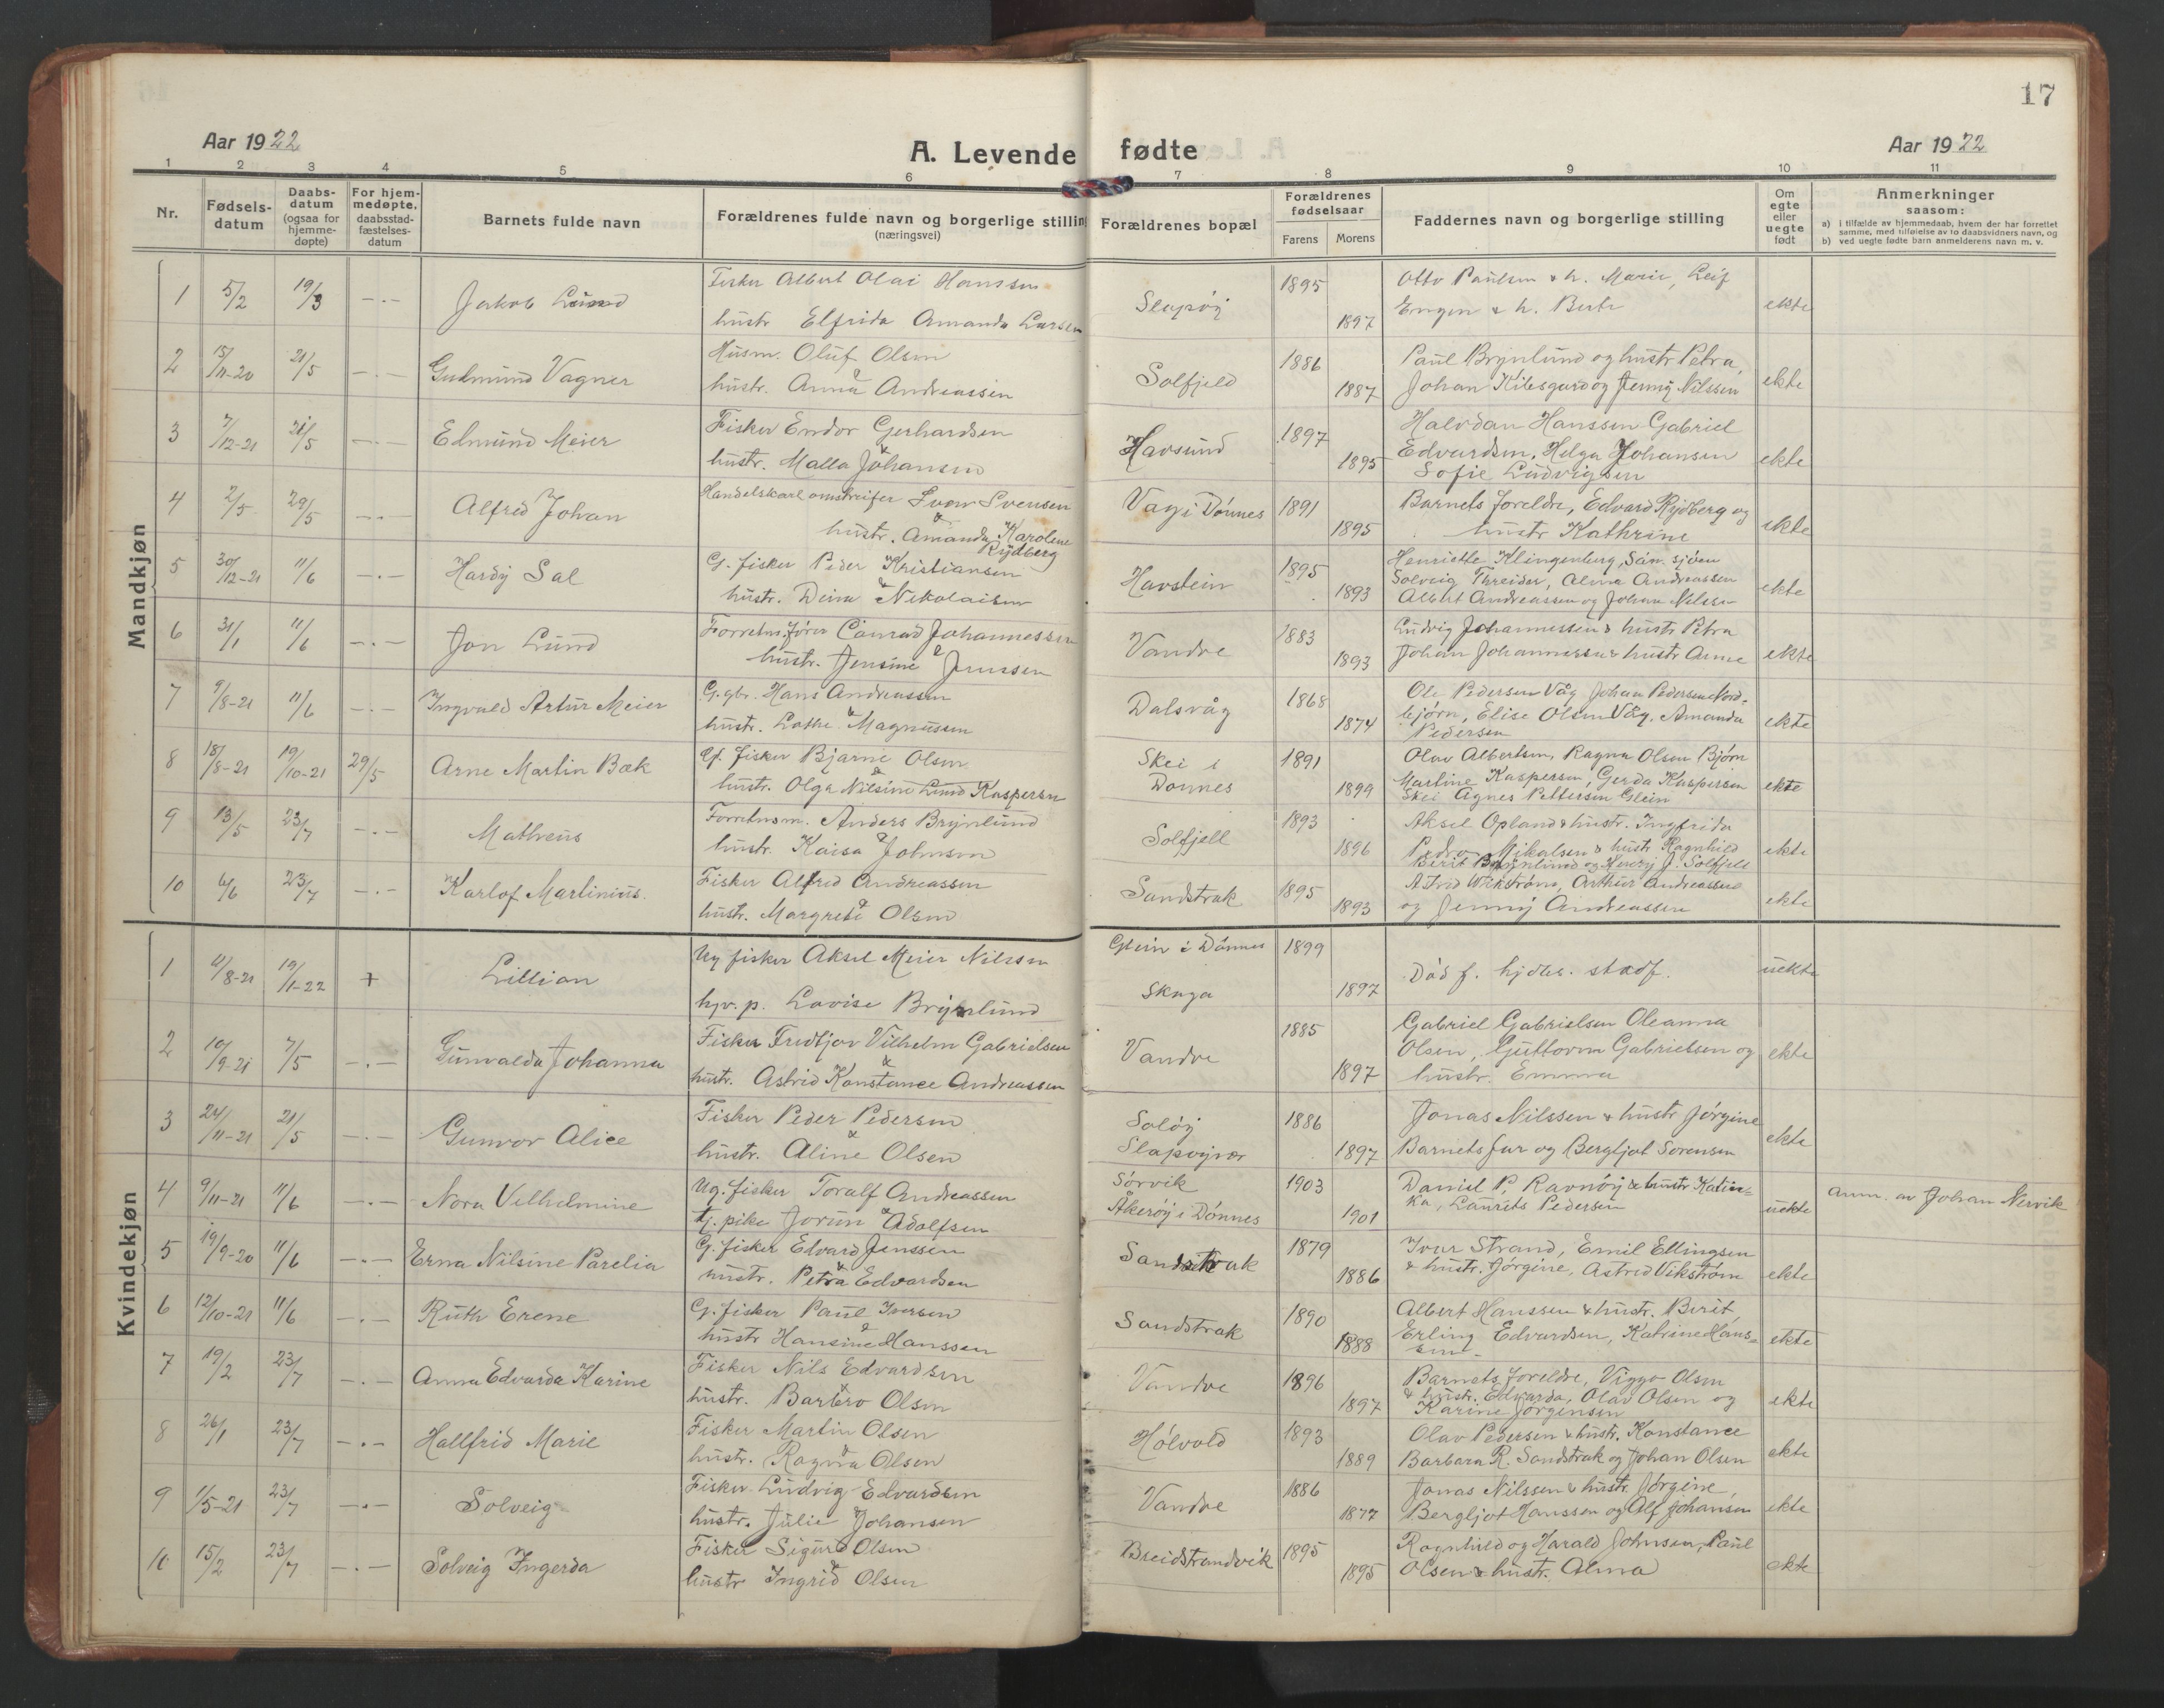 17
Aar 1922
A. Levende fødte
Aar 1922
1 2 3 4 5 6 7 8 9 10 11
Nr.
Fødsels-
datum
Daabs-
datum
(ogsaa for
hjemme-
døpte)
For hjem-
medøpte,
daabsstad-
fæstelses-
datum
Barnets fulde navn
Forældrenes fulde navn og borgerlige stilling
(næringsvei)
Forældrenes bopæl
Forældrenes
fødselsaar
Farens Morens
Faddernes navn og borgerlige stilling
Om
egte
eller
uegte
født
Anmerkninger
saasom:
a) i tilfælde av hjemmedaab, hvem der har forrettet
samme, med tilføielse av to daabsvidners navn, og
b) ved uegte fødte barn anmelderens navn m. v.
Mandkjøn
1 5/2 19/3 -.- Jakob Lund
Fisker Albert Olai Hanssen
hustr Elfrida Amanda Larsen
Slapøy 1895 1897
Otto Paulsen & h. Marie, Leif
Engen & h. Berte
ekte
2 15/11-20 21/5 -.- Gudmund Vagner
Husm. Oluf Olsen
&
hustr. Anna Andreassen
Solfjeld 1886 1887
Paul Brynlund og hustr Petra,
Johan Kilesgard og Jenny Nilssen
ekte
3 7/12-21 21/5 -.- Edmund Meier
Fisker Endor Gerhardsen
&
hustr. Malla Johansen
Havsund 1897 1895
Halvdan Hanssen Gabriel
Edvardsen, Helga Johansen
Sofie Ludvigsen
ekte
4 2/5 29/5 -.- Alfred Johan
Handelskarl omstreifer Sven Svensen
&
hustr. Amanda Karolene
Rydberg
Vag i Dønnes 1891 1895
Barnets foreldre, Edvard Rydberg og
hustr Kathrine
ekte
5 30/12-21 11/6 -.- Hardy Sal
G. fisker Peder Kristiansen
&
hustr. Deina Nikolaisen
Havstein 1895 1893
Henriette Klingenberg, San. sjøen
Solveig Threider, Alma Andreassen
Albert Andreassen og Johan Nilssen
ekte
6 31/1 11/6 -.- Jon Lund
Forretn.fører Conrad Johannessen
&
hustr. Jensine Jenssen
Vandve 1883 1893
Ludvig Johannessen & hustr Petra
Johan Johannessen & hustr Anne
ekte
7 9/8-21 11/6 -.- Ingvald Artur Meier
G.gbr. Hans Andreassen
&
hustr. Lothe Magnussen
Dalsvåg 1868 1874
Ole Pedersen Våg Johan Pedersen Nord-
bjørn, Elise Olsen Våg. Amanda
Pedersen
ekte
8 18/8-21 19/10-21 29/5 Arne Martin Bæk
G. fisker Bjarne Olsen
&
hustr. Olga Nilsine Lund Kaspersen
Skei i
Dønnes 1891 1899
Olav Albertsen, Ragna Olsen Bjørn
Martine Kaspersen, Gerda Kaspersen
Skei Agnes Pettersen Glein
ekte
9 13/5 23/7 -.- Matheus
Forretnsm. Anders Brynlund
&
hustr. Kaisa Johnsen
Solfjell 1893 1896
Aksel Opland & hustr. Ingfrida
Pedro Mikalsen & hustr Ragnhild
Berit Brynlund og Henry J. Solfjell
ekte
10 6/6 23/7 -.- Karlof Martinius.
Fisker Alfred Andreassen
&
hustr. Margrete Olsen
Sandstrak 1895 1893
Astrid Wikstrøm, Arthur Andreassen
og Jenny Andreassen
ekte
Kvindekjøn
1 4/8-21 19/1-22 + Lillian
Ug fisker Aksel Meier Nilssen
hjv. p. Lovise Brynlund
Glein i Dønnes
Skaga 1899 1897
Død f. hjdb. stadf.
uekte
2 10/9-21 7/5 -.- Gunvalda Johanna
Fisker Fredtjov Vilhelm Gabrielsen
&
hustr. Astrid Konstance Andreassen
Vandve 1885 1897
Gabriel Gabrielsen Oleanna
Olsen, Guttorm Gabrielsen og
hustr. Emma
ekte
3 24/11-21 21/5 -.- Gunvor Alice
Fisker Peder Pedersen
&
hustr. Aline Olsen
Soløy
Slapøyvær 1886 1897
Jonas Nilssen & hustr Jørgine
Barnets far og Bergljot Sørensen
ekte
4 9/11-21 11/6 -.- Nora Vilhelmine
Ug. fisker Toralf Andreassen
&
tj. pike Jorun Adolfsen
Sørvik
Åkerøy i Dønnes 1903 1901
Daniel P. Ravnøy & hustr Katin-
ka, Laurits Pedersen
uekte
Anm. av Johan Nervik
5 19/9-20 11/6 -.- Erna Nilsine Parelia
G. fisker Edvard Jenssen
&
hustr. Petra Edvardsen
Sandstrak 1879 1886
Ivar Strand, Emil Ellingsen
& hustr. Jørgine, Astrid Vikstrøm
ekte
6 12/10-21 11/6 -.- Ruth Erene
G. fisker Paul Iversen
&
hustr Hansine Hanssen
Sandstrak 1890 1888
Albert Hanssen & hustr. Berit,
Erling Edvardsen, Katrine Hans-
sen-
ekte
7 19/2 23/7 -.- Anna Edvarda Karine
Fisker Nils Edvardsen
&
hustr. Barbro Olsen
Vandve 1896 1897
Barnets foreldre, Viggo Olsen
& hustr. Edvarda, Olav Olsen og
Karine Jørgensen
ekte
8 26/1 23/7 -.- Hallfrid Marie
Fisker Martin Olsen
&
hustr. Ragna Olsen
Hølvold 1893 1889
Olav Pedersen & hustr. Konstance
Barbara R. Sandstrak og Johan Olsen
ekte
9 1/5-21 23/7 -.- Solveig
Fisker Ludvig Edvardsen
hustr. Julie Johansen
Vandve 1886 1877
Jonas Nilssen & hustr. Jørgine,
Bergljot Hanssen og Alf Johansen
ekte
10 15/2 23/7 -.- Solveig Ingerda
Fisker Sigurd Olsen
&
hustr Ingrid Olsen
Breidstrandvik 1895 1895
Ragnhild og Harald Johnsen, Paul
Olsen & hustr. Alma
ekte